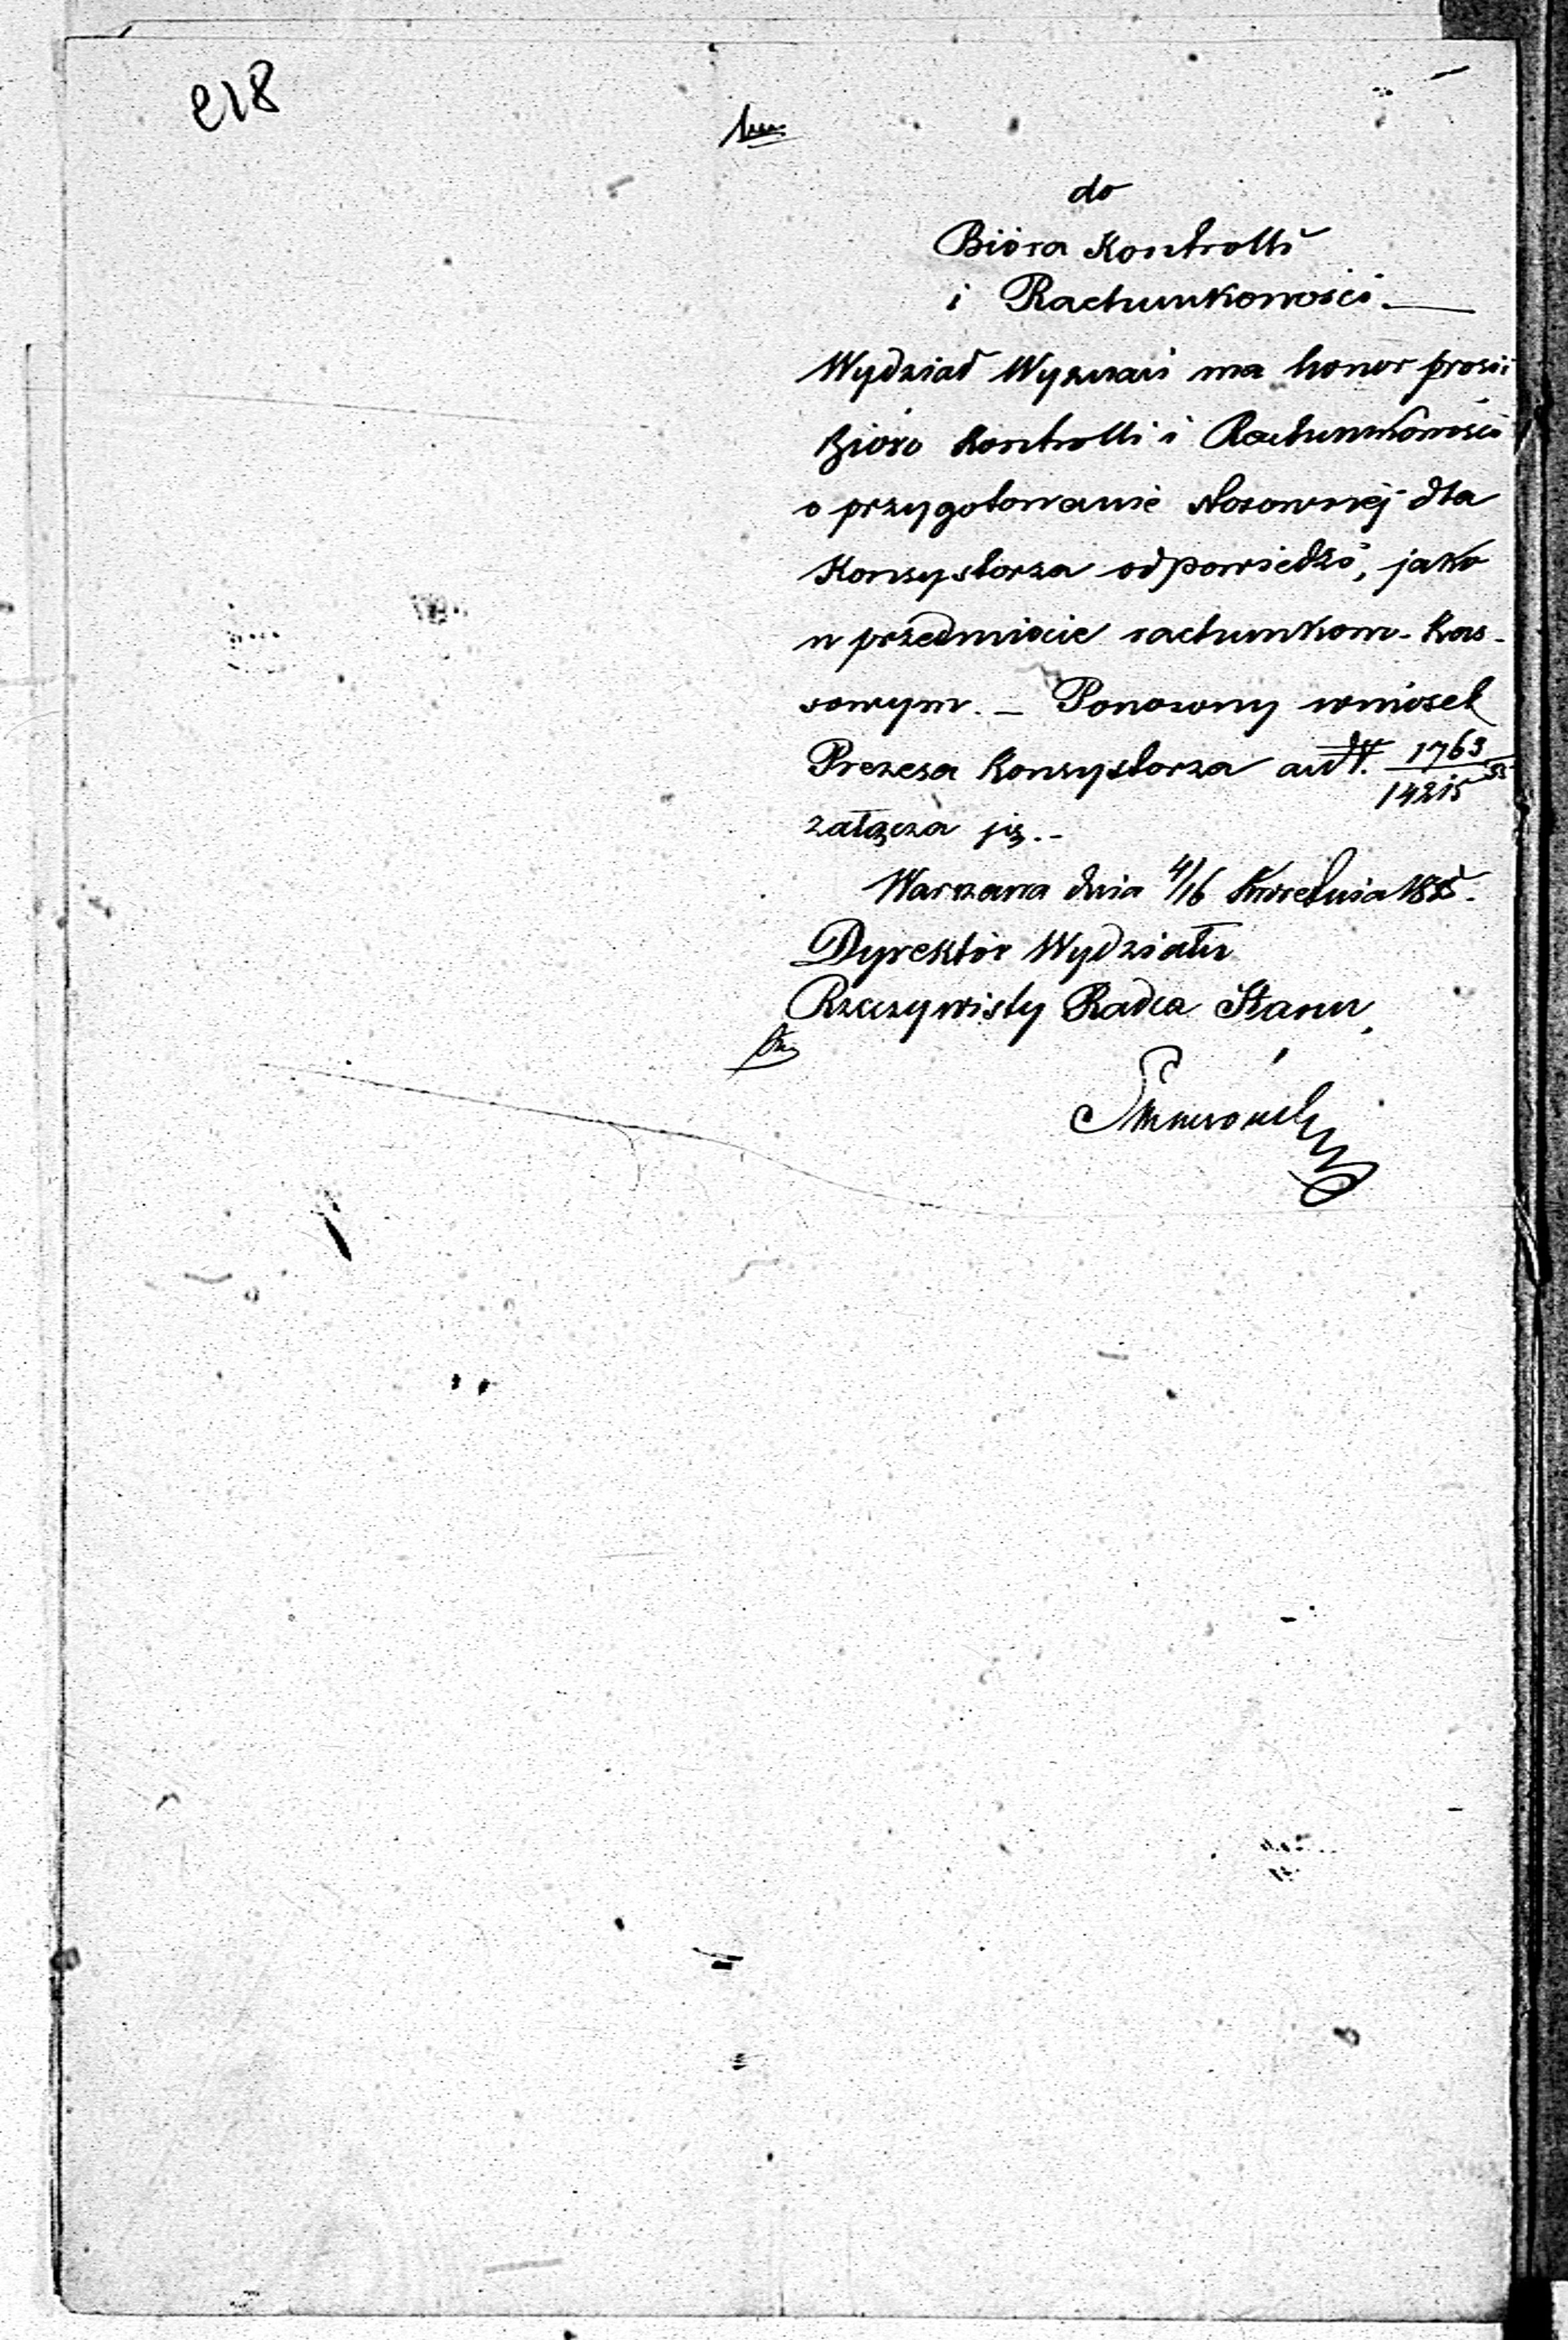 218
do
Bióra Kontrolli
i Rachunkowości.
Wydział Wyznań ma honor prosić
Bióro Kontrolli i Rachunkowości
o przygotowanie stosownéj dla
Konsystorza odpowiedzi, jako
w przedmiocie rachunkowo-kas-
sowym. — Ponowny wniosek
Prezesa Konsystorza ad N. 1763/14215
załącza się. -
Warszawa dnia 4/16 Kwietnia 185
Dyrektor Wydziału
Rzeczywisty Radca Stanu,